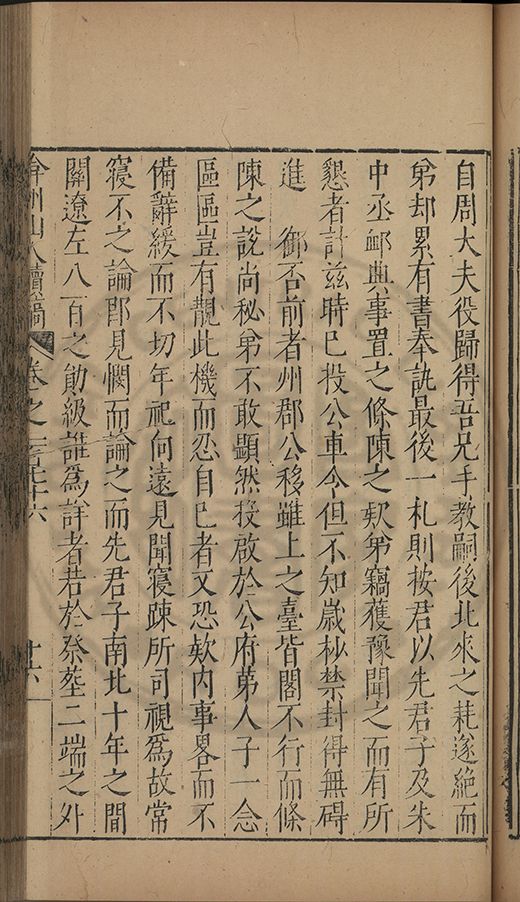 自周大夫役歸得吾兄手教嗣後北來之耗遂絕而
弟却累有書奉訊最後一札則按君以先君子及朱
中丞卹典事置之條陳之欵弟竊獲豫聞之而有所
懇者計茲時已投公車今但不知歲杪禁封得無碍
進　御否前者州郡公移雖上之臺皆閣不行而條
陳之說尚秘弟不敢顯然投啟於公府第人子一念
區區豈有覩此機而忍自已者又恐欵內事畧而不
備辭緩而不切年祀向遠見聞寢疎所司視爲故常
寢不之論卽見憫而論之而先君子南北十年之間
關遼左八百之勛級誰爲詳者若於祭塟二端之外
弇州山人續稿　卷之一百七十六　十六